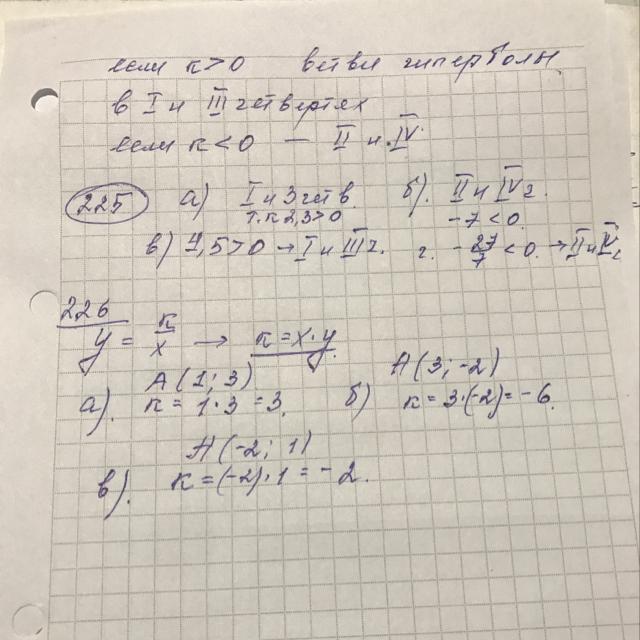 если к>0 ветви гиперболы
в I и III четвертях
если к<0 — II и IV.
225 а) I и 3 четв. б). II и IV г.
т.к 2,3>0 -7<0.
в) 7,5>0 → I и III г. г. -27/7<0. → II и IV г
226
y = к/x → к=x·y
а). A(1; 3) б) A(3; -2)
к = 1·3=3. к = 3·(-2)= -6.
в). A(-2; 1)
к = (-2)·1 = -2.